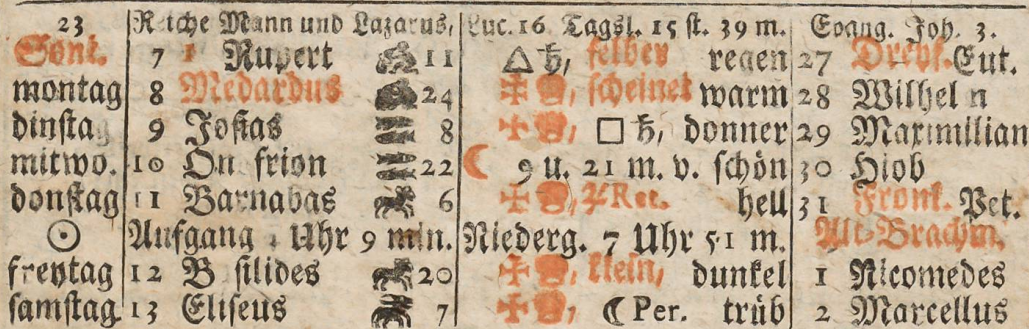 23 R iche Mann und Lazarus, Luc. 16. Tagsl. 15 st. 39 m. Evang. Joh. 3.
Sont. 7 1 Rupert 11 △ ♄, selber regen 27 Dreyf. Eut.
montag 8 Medardus 24 scheinet warm 28 Wilhel n
dinsta 9 Josias 8 □ ♄, donner 29 Maximilian
mitwo. 10 On frion 22 ☾ 9 u. 21 m. v. schön 30 Hiob
donstag 11 Barnabas 6 ♃ Ret. hell 31 Fronl. Pet.
☉ Aufgang Uhr 9 min. Niederg. 7 Uhr 51 m. Alt-Brachm.
freytag 12 B silides 20 klein, dunkel 1 Nicomedes
samstag 13 Eliseus 7 ☾ Per. trüb 2 Marcellus